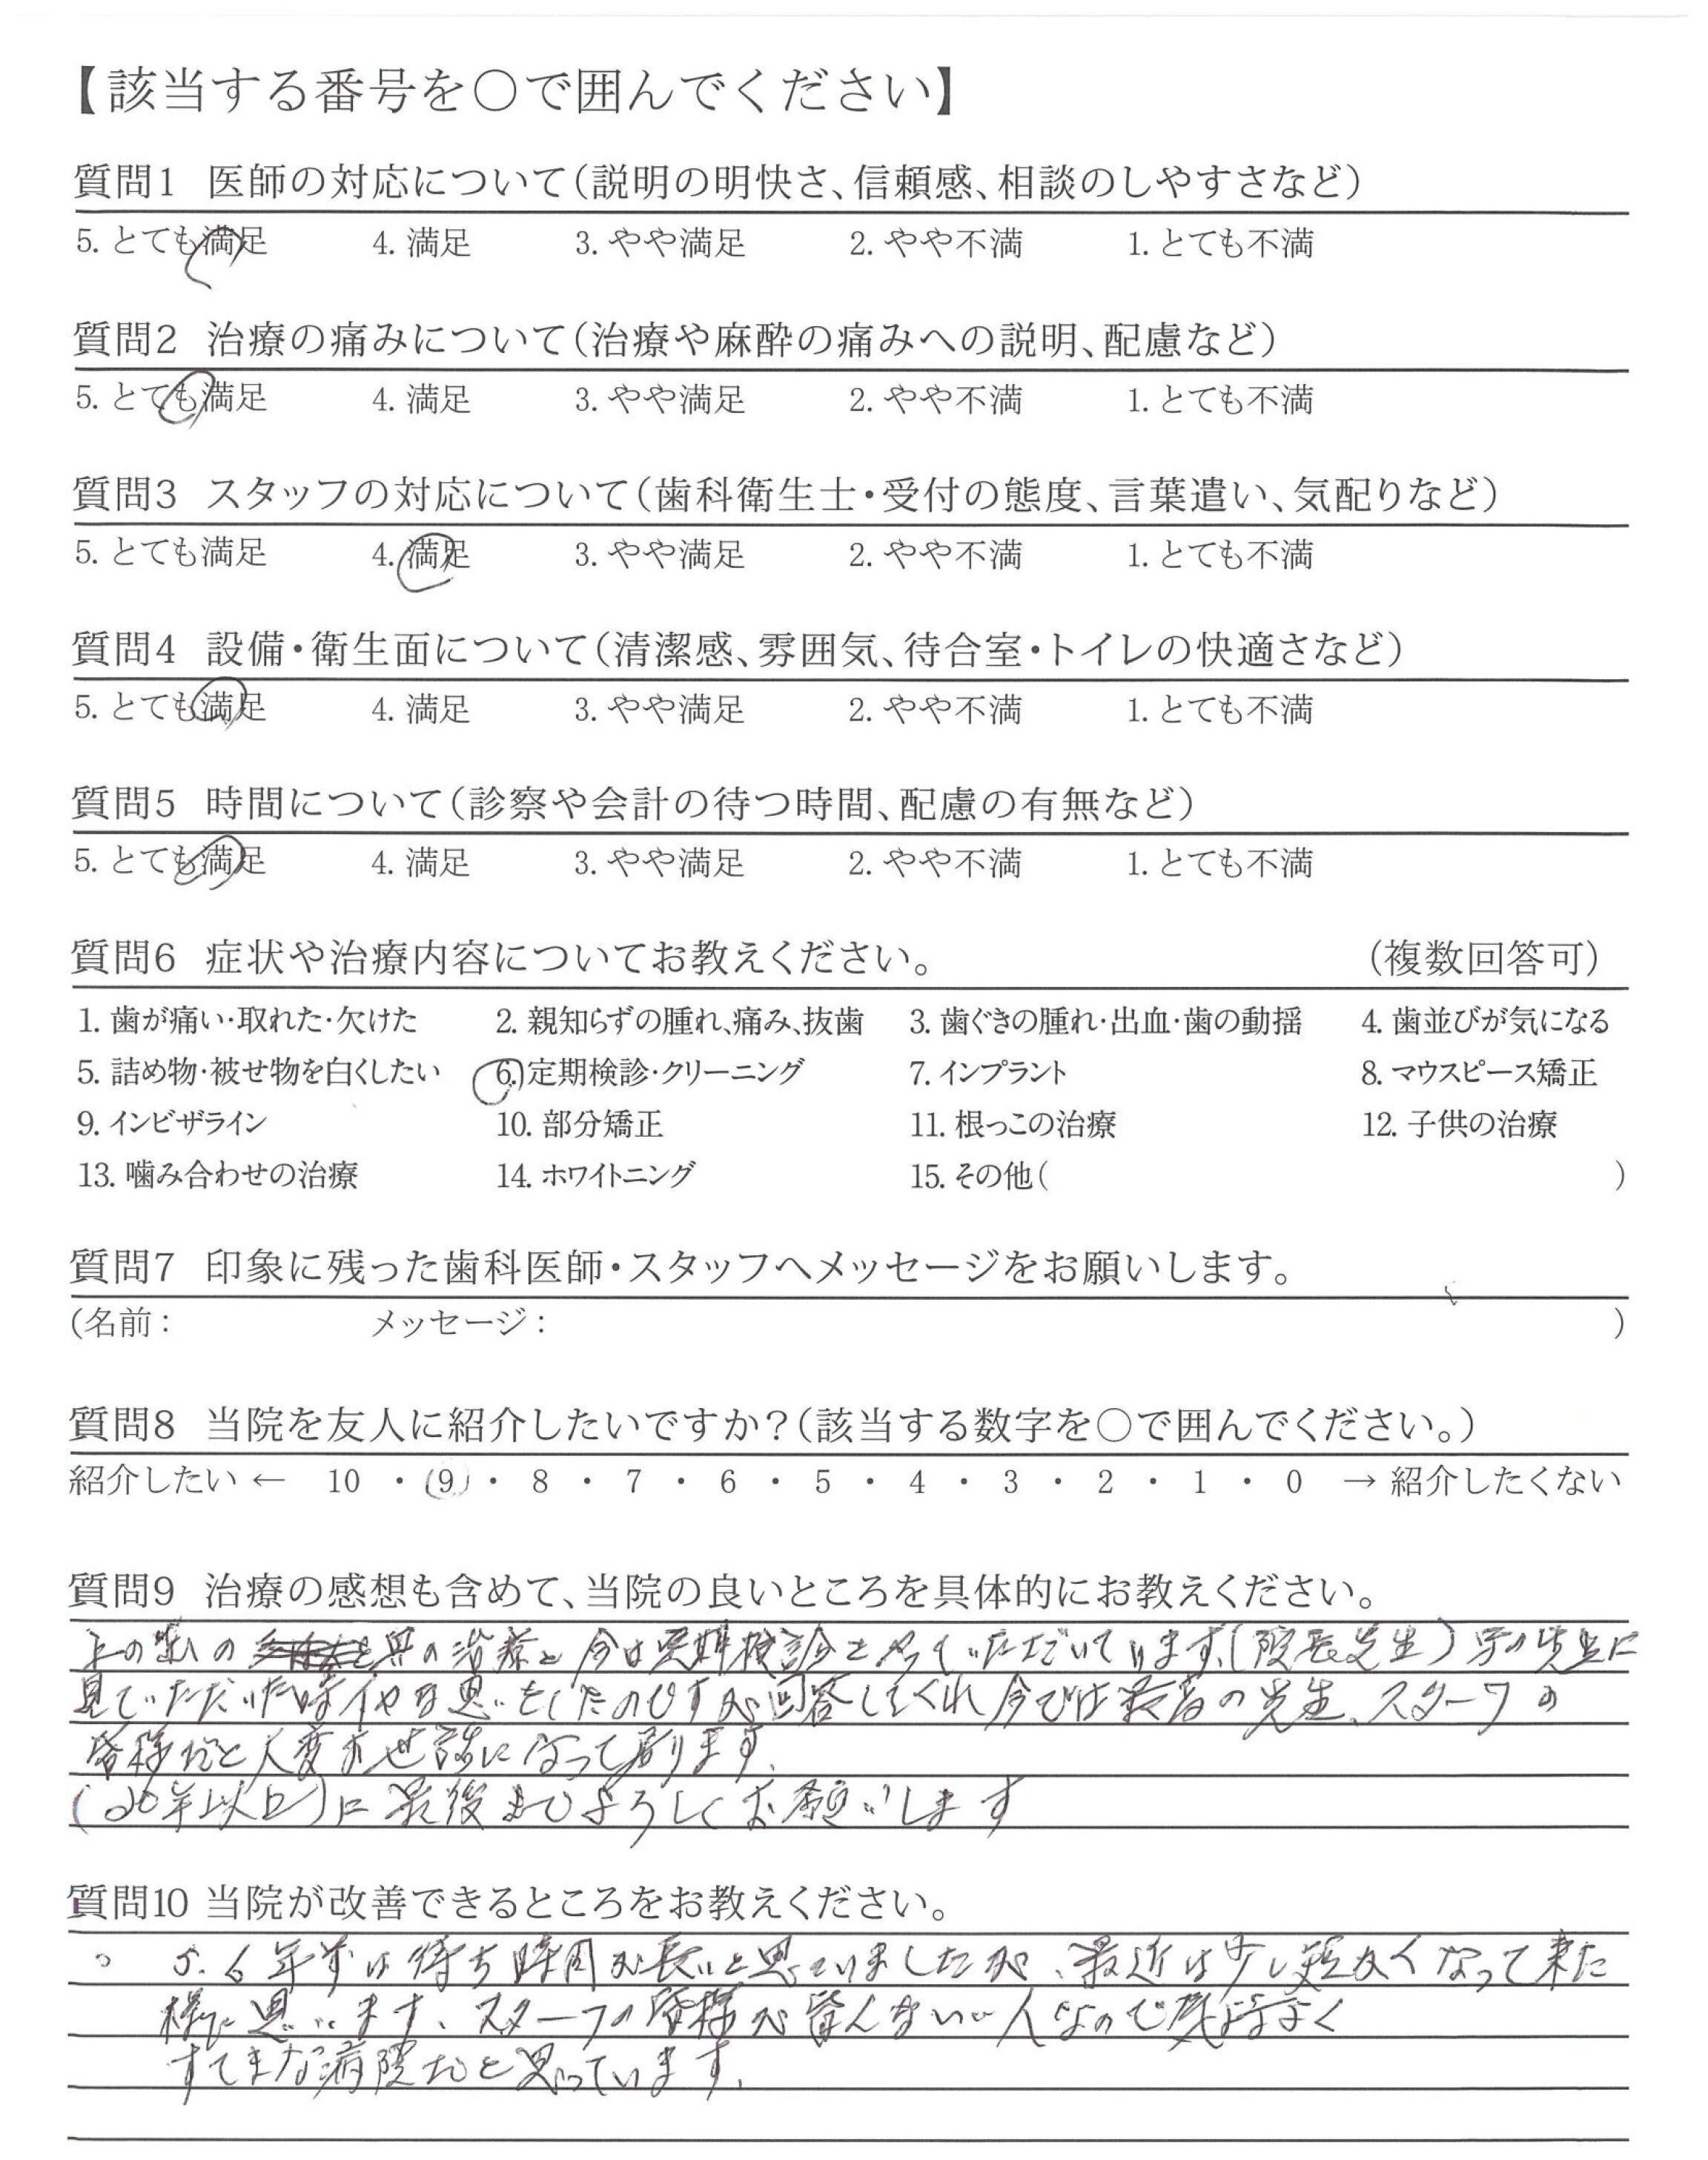 【該当する番号を○で囲んでください】
質問1 医師の対応について(説明の明快さ、信頼感、相談のしやすさなど)
5. とても満足 4. 満足 3. やや満足 2. やや不満 1. とても不満
質問2 治療の痛みについて(治療や麻酔の痛みへの説明、配慮など)
5. とても満足 4. 満足 3. やや満足 2. やや不満 1. とても不満
質問3 スタッフの対応について(歯科衛生士・受付の態度、言葉遣い、気配りなど)
5. とても満足 4. 満足 3. やや満足 2. やや不満 1. とても不満
質問4 設備・衛生面について(清潔感、雰囲気、待合室・トイレの快適さなど)
5. とても満足 4. 満足 3. やや満足 2. やや不満 1. とても不満
質問5 時間について(診察や会計の待つ時間、配慮の有無など)
5. とても満足 4. 満足 3. やや満足 2. やや不満 1. とても不満
質問6 症状や治療内容についてお教えください。 (複数回答可)
1. 歯が痛い・取れた・欠けた 2. 親知らずの腫れ、痛み、抜歯 3. 歯ぐきの腫れ・出血・歯の動揺 4. 歯並びが気になる
5. 詰め物・被せ物を白くしたい 6. 定期検診・クリーニング 7. インプラント 8. マウスピース矯正
9. インビザライン 10. 部分矯正 11. 根っこの治療 12. 子供の治療
13. 噛み合わせの治療 14. ホワイトニング 15. その他( )
質問7 印象に残った歯科医師・スタッフへメッセージをお願いします。
(名前: メッセージ: )
質問8 当院を友人に紹介したいですか?(該当する数字を○で囲んでください。)
紹介したい ← 10 ・ 9 ・ 8 ・ 7 ・ 6 ・ 5 ・ 4 ・ 3 ・ 2 ・ 1 ・ 0 → 紹介したくない
質問9 治療の感想も含めて、当院の良いところを具体的にお教えください。
上の歯の 奥の治療と今は定期検診をやっていただいています。(院長先生) の先生に
見ていただいた時イヤな思いをしたのですが回答してくれ今では最高の先生、スターフの
皆様だと大変お世話になって居ります。
(20年以上)に最後までよろしくお願いします
質問10 当院が改善できるところをお教えください。
。 5.6年前は待ち時間が長いと思っていましたが、最近は少し短かくなって来た
様に思います、スターフの皆様が皆んないい人なので気持よく
すてきな病院だと思っています。